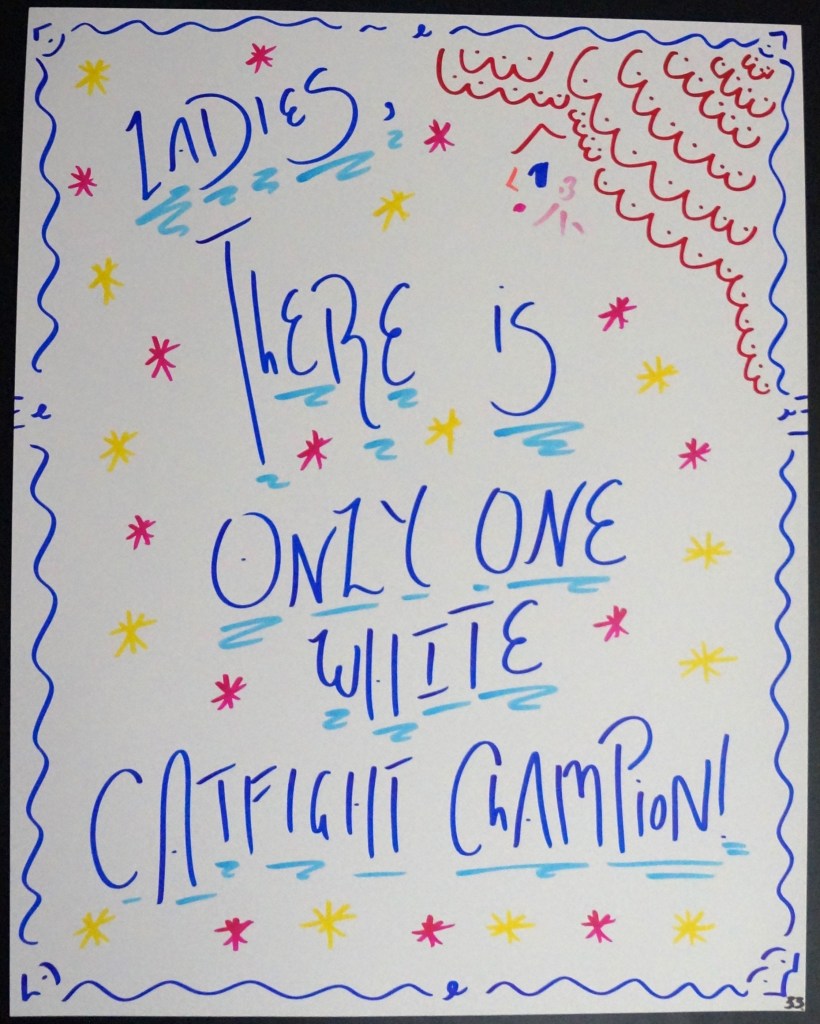 LADIES,
THERE IS
ONLY ONE
WHITE
CATFIGHT CHAMPION!
33